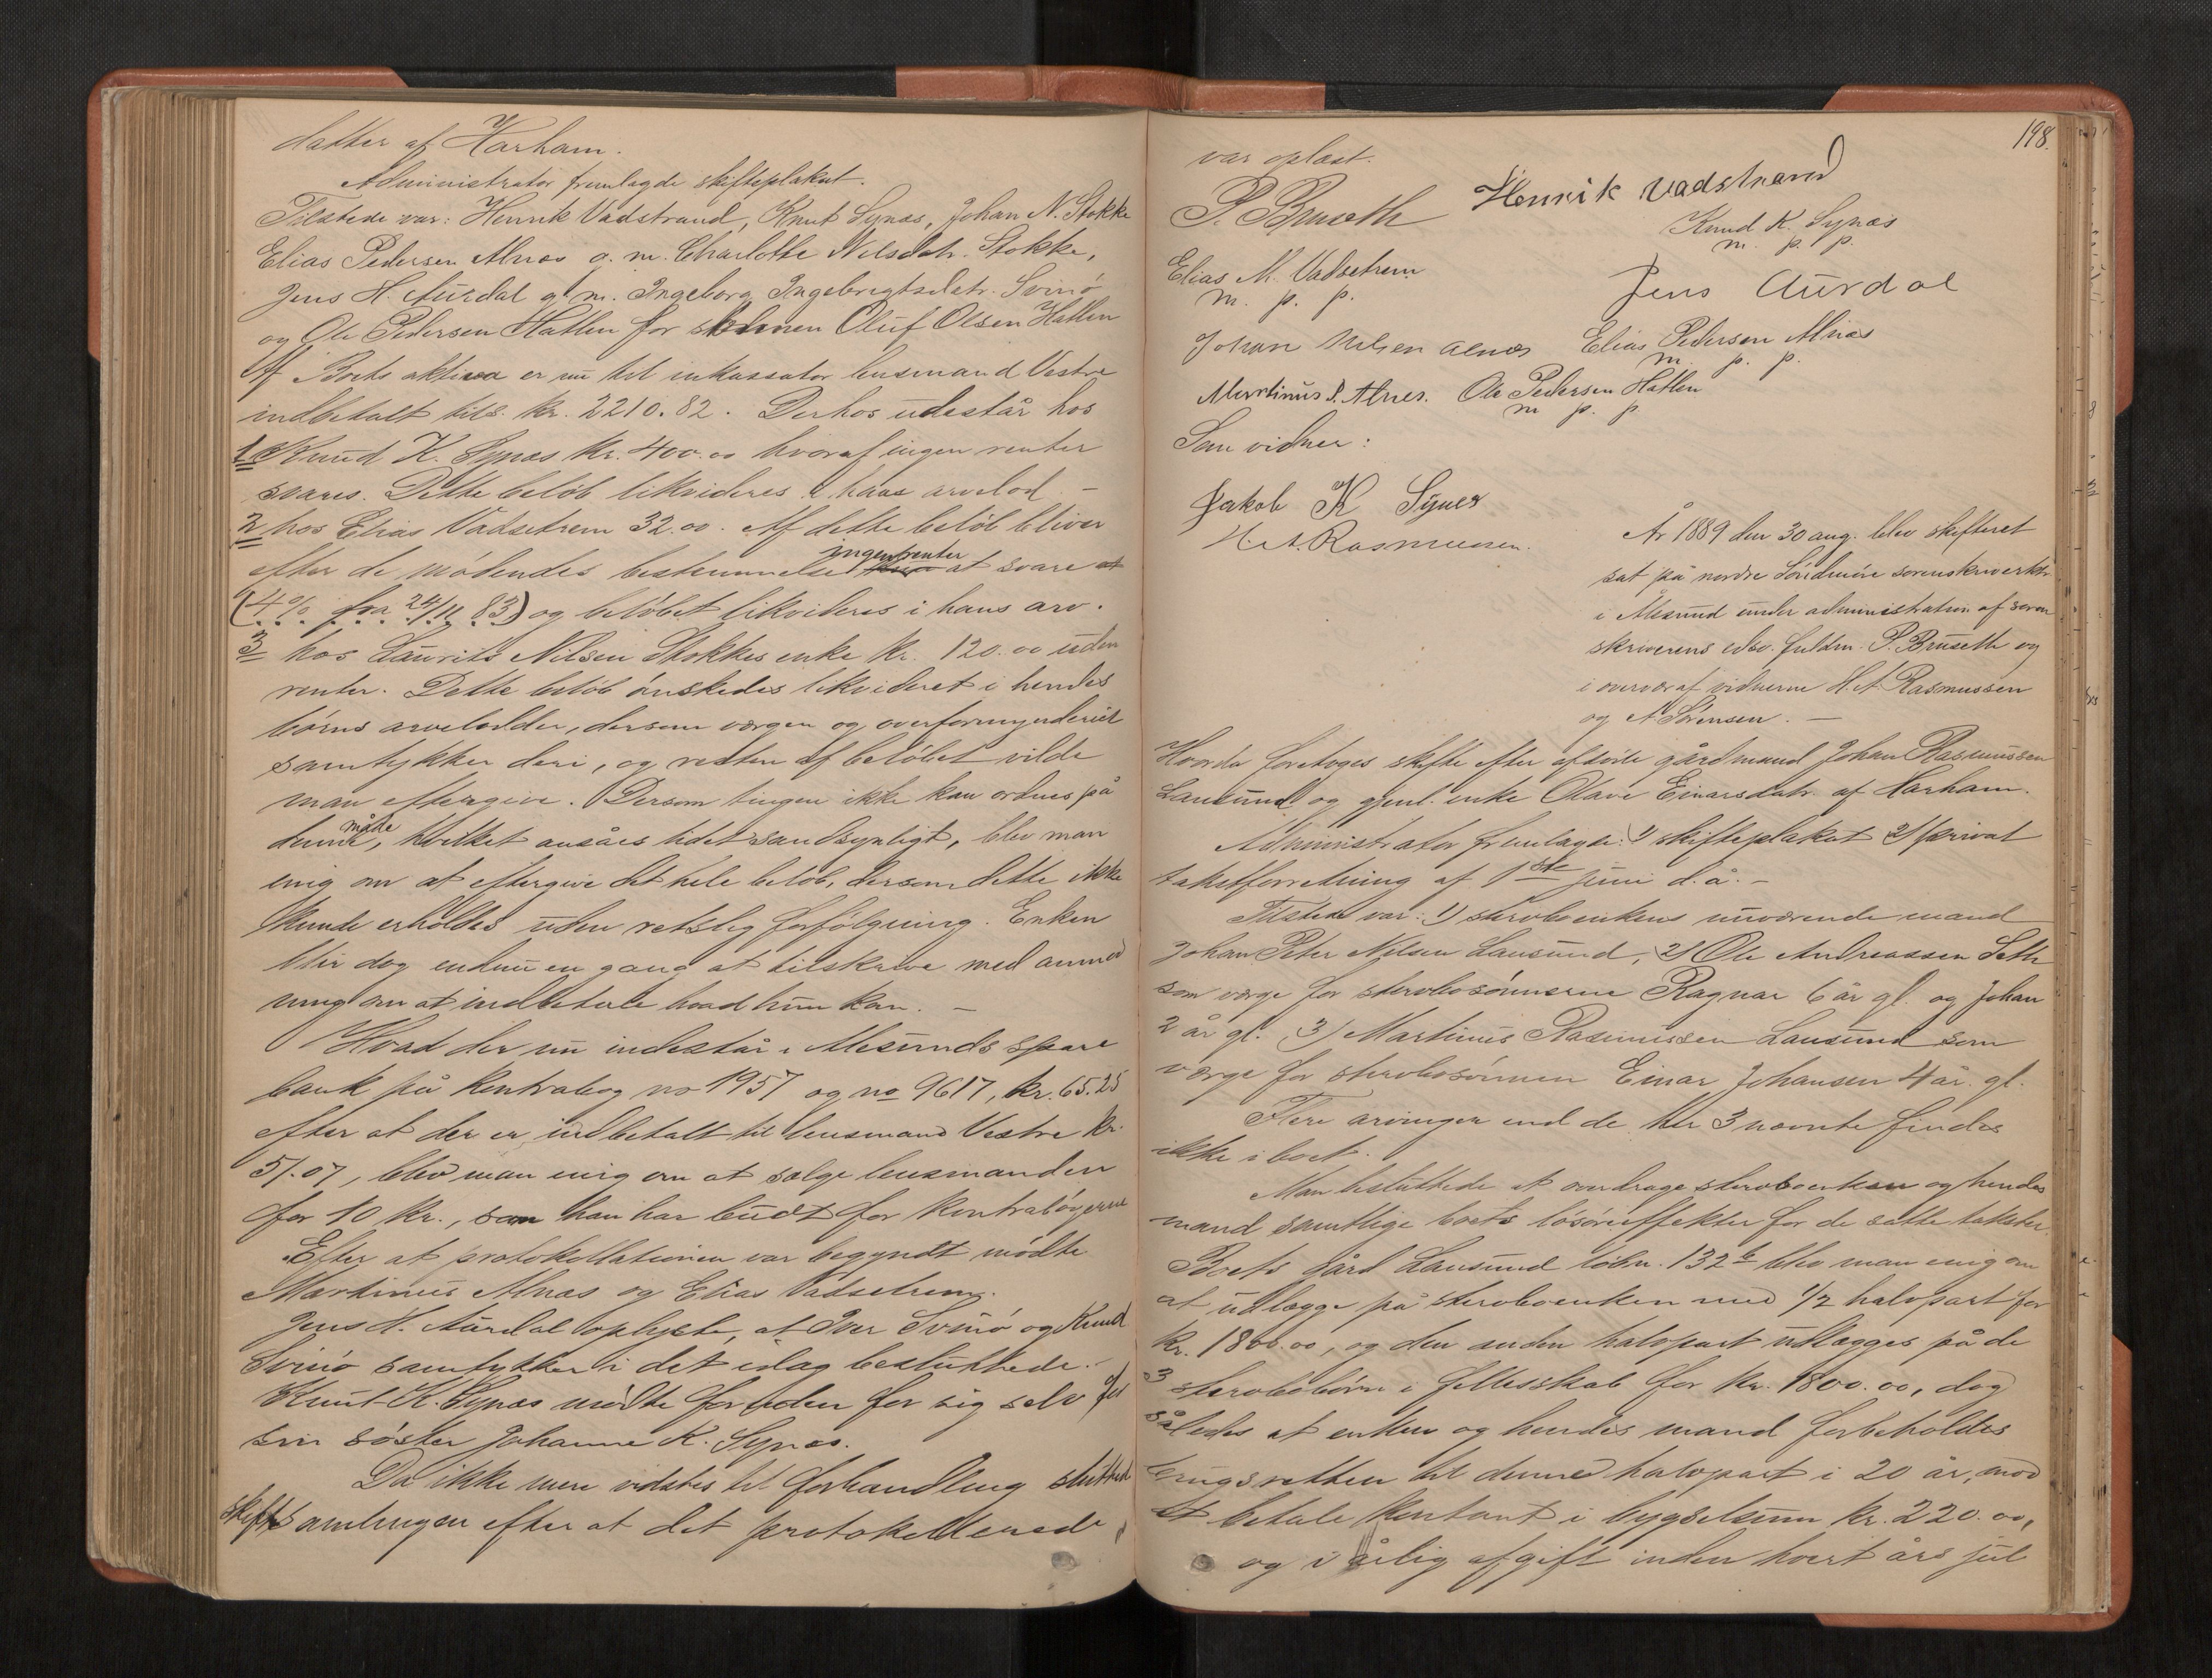 datter af Harham.
Administrator fremlagde skifteplakat.
Tilstede var: Henrik Vadstrand, Knut Synæs, Johan N. Stokke
Elias Pedersen Alnæs g. m. Charlotte Nilsdatr. Stokke,
Jens H. Aurdal g. m. Ingeborg Ingebrigtsdatr. Svinö
og Ole Pedersen Hatlen for sönnen Oluf Olsen Hatlen
Af Boets aktiva er nu til inkassator lensmand Vestre
indbetalt tils. kr. 2210.82. Derhos udestår hos
1 Knud K. Synæs kr. 400.00 hvoraf ingen renter
svares. Dette belöb likvideres i hans arvelod. -
2 hos Elias Vadsetrem 32.00. Af dette belöb bliver
efter de mödendes bestemmelse ingen renter at svare
(4% fra 24/11 83) og belöbet likvideres i hans arv.
3 hos Laurits Nilsen Stokkes enke kr. 120.00 uden
renter. Dette belöb önskedes likvideret i hendes
börns arvelodder, dersom værgen og overformynderiet
samtykker deri, og resten af belöbet vilde
man eftergive. Dersom tingen ikke kan ordnes på
denne måde, hvilket ansåes lidet sandsynligt, blev man
enig om at eftergive det hele belöb, dersom dette ikke
kunde erholdes uden retslig forfölgning. Enken
blir dog endnu en gang at tilskrive med anmod
ning om at indbetale hvad hun kan. -
Hvad der nu indestår i Alesunds spare
bank på kontrabog no 1957 og no 9617, kr. 65.25
efter at der er indbetalt til lensmand Vestre kr.
51.07, blev man enig om at sælge lensmanden
for 10 kr., som han har budt for kontrabögerne
Efter at protokollationen var begyndt mödte
Martinus Alnæs og Elias Vadsetrem.
Jens H. Aurdal oplyste, at Iver Svinö og Knud
Svinö samtykker i det idag besluttede. -
Knut K. Synæs mödte foruden for sig selv for
sin söster Johanne K. Synæs.
Da ikke mere vidstes til forhandling sluttedes
skiftesamlingen efter at det protokollerede
198.
var oplæst.
P. Bruseth Henrik Vadstrand
Knud K. Synæs
m. p. p.
Elias M. Vadsetrem
m. p. p.
Jens Aurdal
Johan Nilsen Alnæs Elias Pedersen Alnæs
m. p. p.
Martinus P. Alnes. Ole Pedersen Hatlen
m. p. p
Som vidner:
Jakob K Synes
H. A. Rasmussen.
År 1889 den 30 aug. blev skifteret
sat på nordre Söndmöre sorenskriverktr.
i Ålesund under administration af soren
skriverens edsv. fuldm. P. Bruseth og
i overvær af vidnerne H. A. Rasmussen
og A Sörensen. -
Hvorda foretoges skifte efter afdöde gårdmand Johan Rasmussen
Lausund og gjenl. enke Olave Einarsdatr. af Harham.
Administrator fremlagde: 1) skifteplakat 2) privat
takstforretning af 1ste juni d. å. -
Tilstede var: 1) sterboenkens nuværende mand
Johan Peter Nilsen Lausund, 2) Ole Andreassen Seth
som værge for sterbosönnerne Ragnar 6 år gl. og Johan
2 år gl. 3) Martinus Rasmussen Lausund som
værge for sterbosönnen Einar Johansen 4 år. gl.
Flere arvinger end de her 3 nævnte findes
ikke i boet.
Man besluttede at overdrage sterboenken og hendes
mand samtlige boets lösöreeffekter for de satte takster.
Boets gård Lausund löbn. 132 b blev man enig om
at udlægge på sterboenken med 1/2 halvpart for
kr. 1800.00, og den anden halvpart udlægges på de
3 sterbobörn i fellesskab for kr. 1800.00, dog
således at enken og hendes mand forbeholdes
brugsretten til denne halvpart i 20 år, mod
at betale kontant i bygselsum kr. 220.00,
og i årlig afgift inden hvert års jul